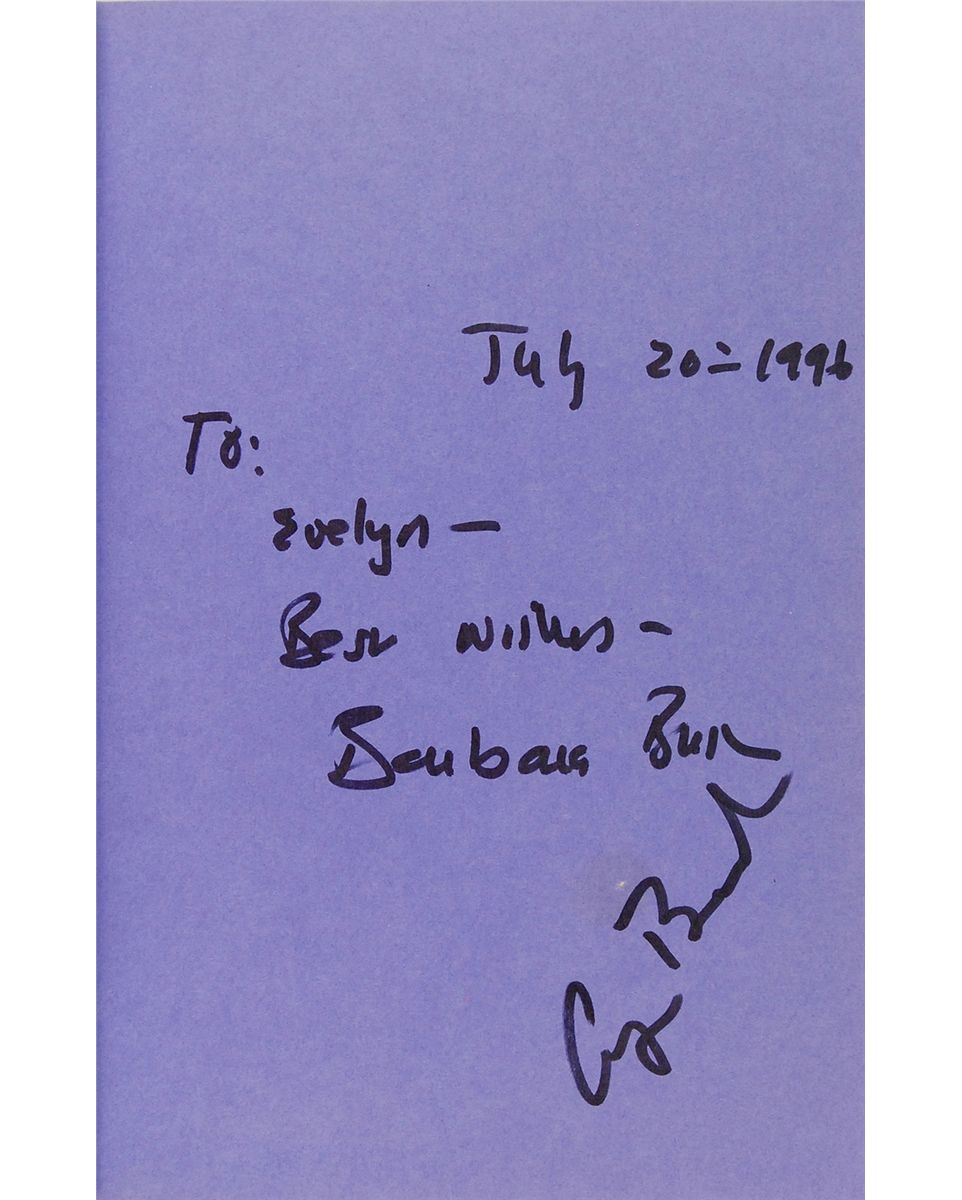 July 20 = 1996
To:
Evelyn —
Best wishes -
Barbara Bush
G Bush